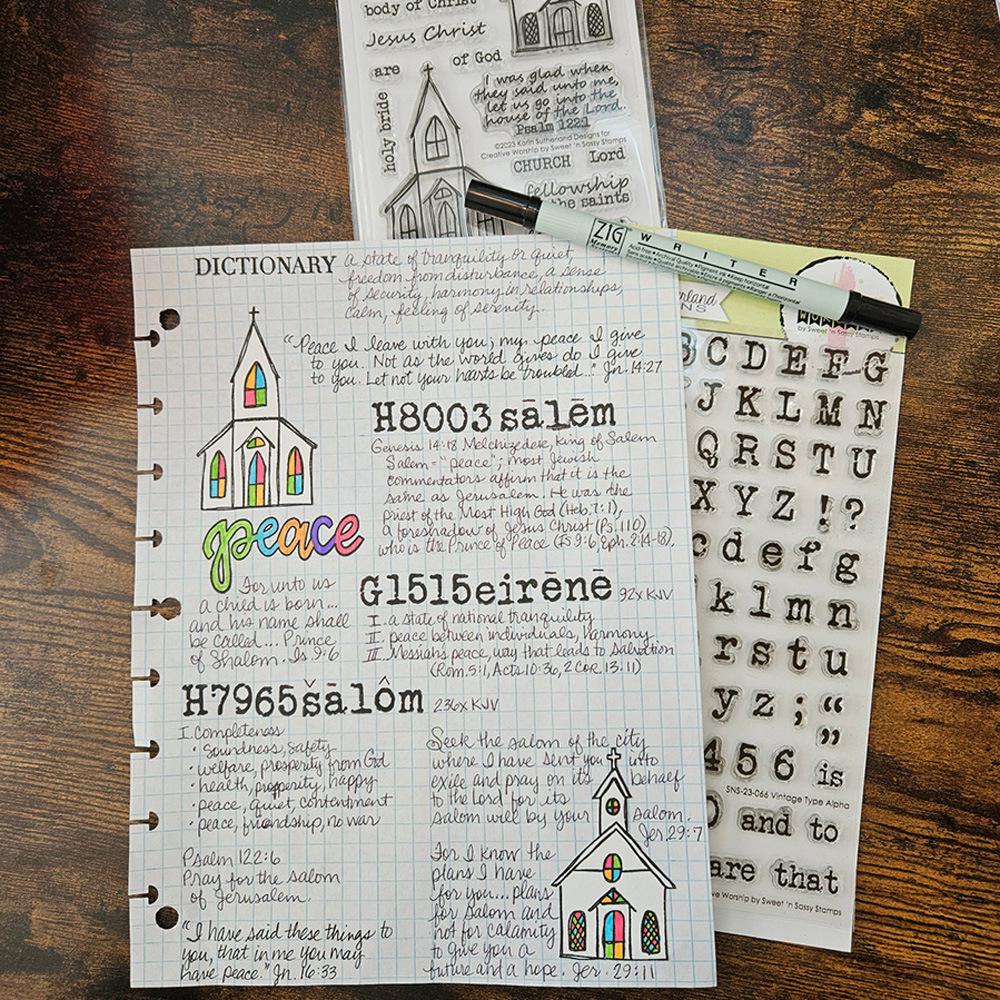 body of Christ
Jesus Christ
are
of God
holy bride
I was glad when
they said unto me,
let us go into the
house of the Lord.
Psalm 122:1
©2023 Karin Sutherland Designs for
Creative Worship by Sweet 'n Sassy Stamps
CHURCH Lord
fellowship
the saints
ZIG
Memory
WRITER
by Sweet 'n Sassy Stamps
DICTIONARY
a state of tranquility or quiet,
freedom from disturbance, a sense
of security, harmony in relationships,
calm, feeling of serenity.
"Peace I leave with you; my peace I give
to you. Not as the world gives do I give
to you. Let not your hearts be troubled..." Jn. 14:27
H8003 sālēm
Genesis 14:18 Melchizedek, King of Salem
Salem = "peace"; most Jewish
commentators affirm that it is the
same as Jerusalem. He was the
priest of the Most High God (Heb. 7:1),
a foreshadow of Jesus Christ (Ps. 110)
who is the Prince of Peace (Is 9:6, Eph. 2:14-18).
peace
For unto us
a child is born...
and his name shall
be called... Prince
of Shalom. Is 9:6
G1515 eirēnē 92x KJV
I. a state of national tranquility
II. peace between individuals, harmony
III. Messiah's peace, way that leads to salvation
(Rom. 5:1, Acts 10:36, 2 Cor. 13:11)
H7965 šālôm 236x KJV
I. Completeness
• soundness, safety
• welfare, prosperity from God
• health, prosperity, happy
• peace, quiet, contentment
• peace, friendship, no war
Psalm 122:6
Pray for the salom
of Jerusalem.
"I have said these things to
you, that in me you may
have peace." Jn. 16:33
Seek the salom of the city
where I have sent you into
exile and pray on its behalf
to the Lord for its
salom will by your salom.
Jer. 29:7
For I know the
plans I have
for you... plans
for salom and
not for calamity
to give you a
future and a hope. Jer. 29:11
B C D E F G
J K L M N
Q R S T U
X Y Z ! ?
c d e f g
k l m n
r s t u
y z ; “
”
4 5 6 is
SNS-23-066 Vintage Type Alpha
and to
are that
Worship by Sweet 'n Sassy Stamps